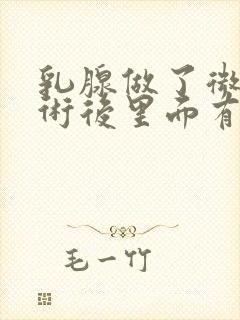 乳腺做了微
術後里面有
毛一竹